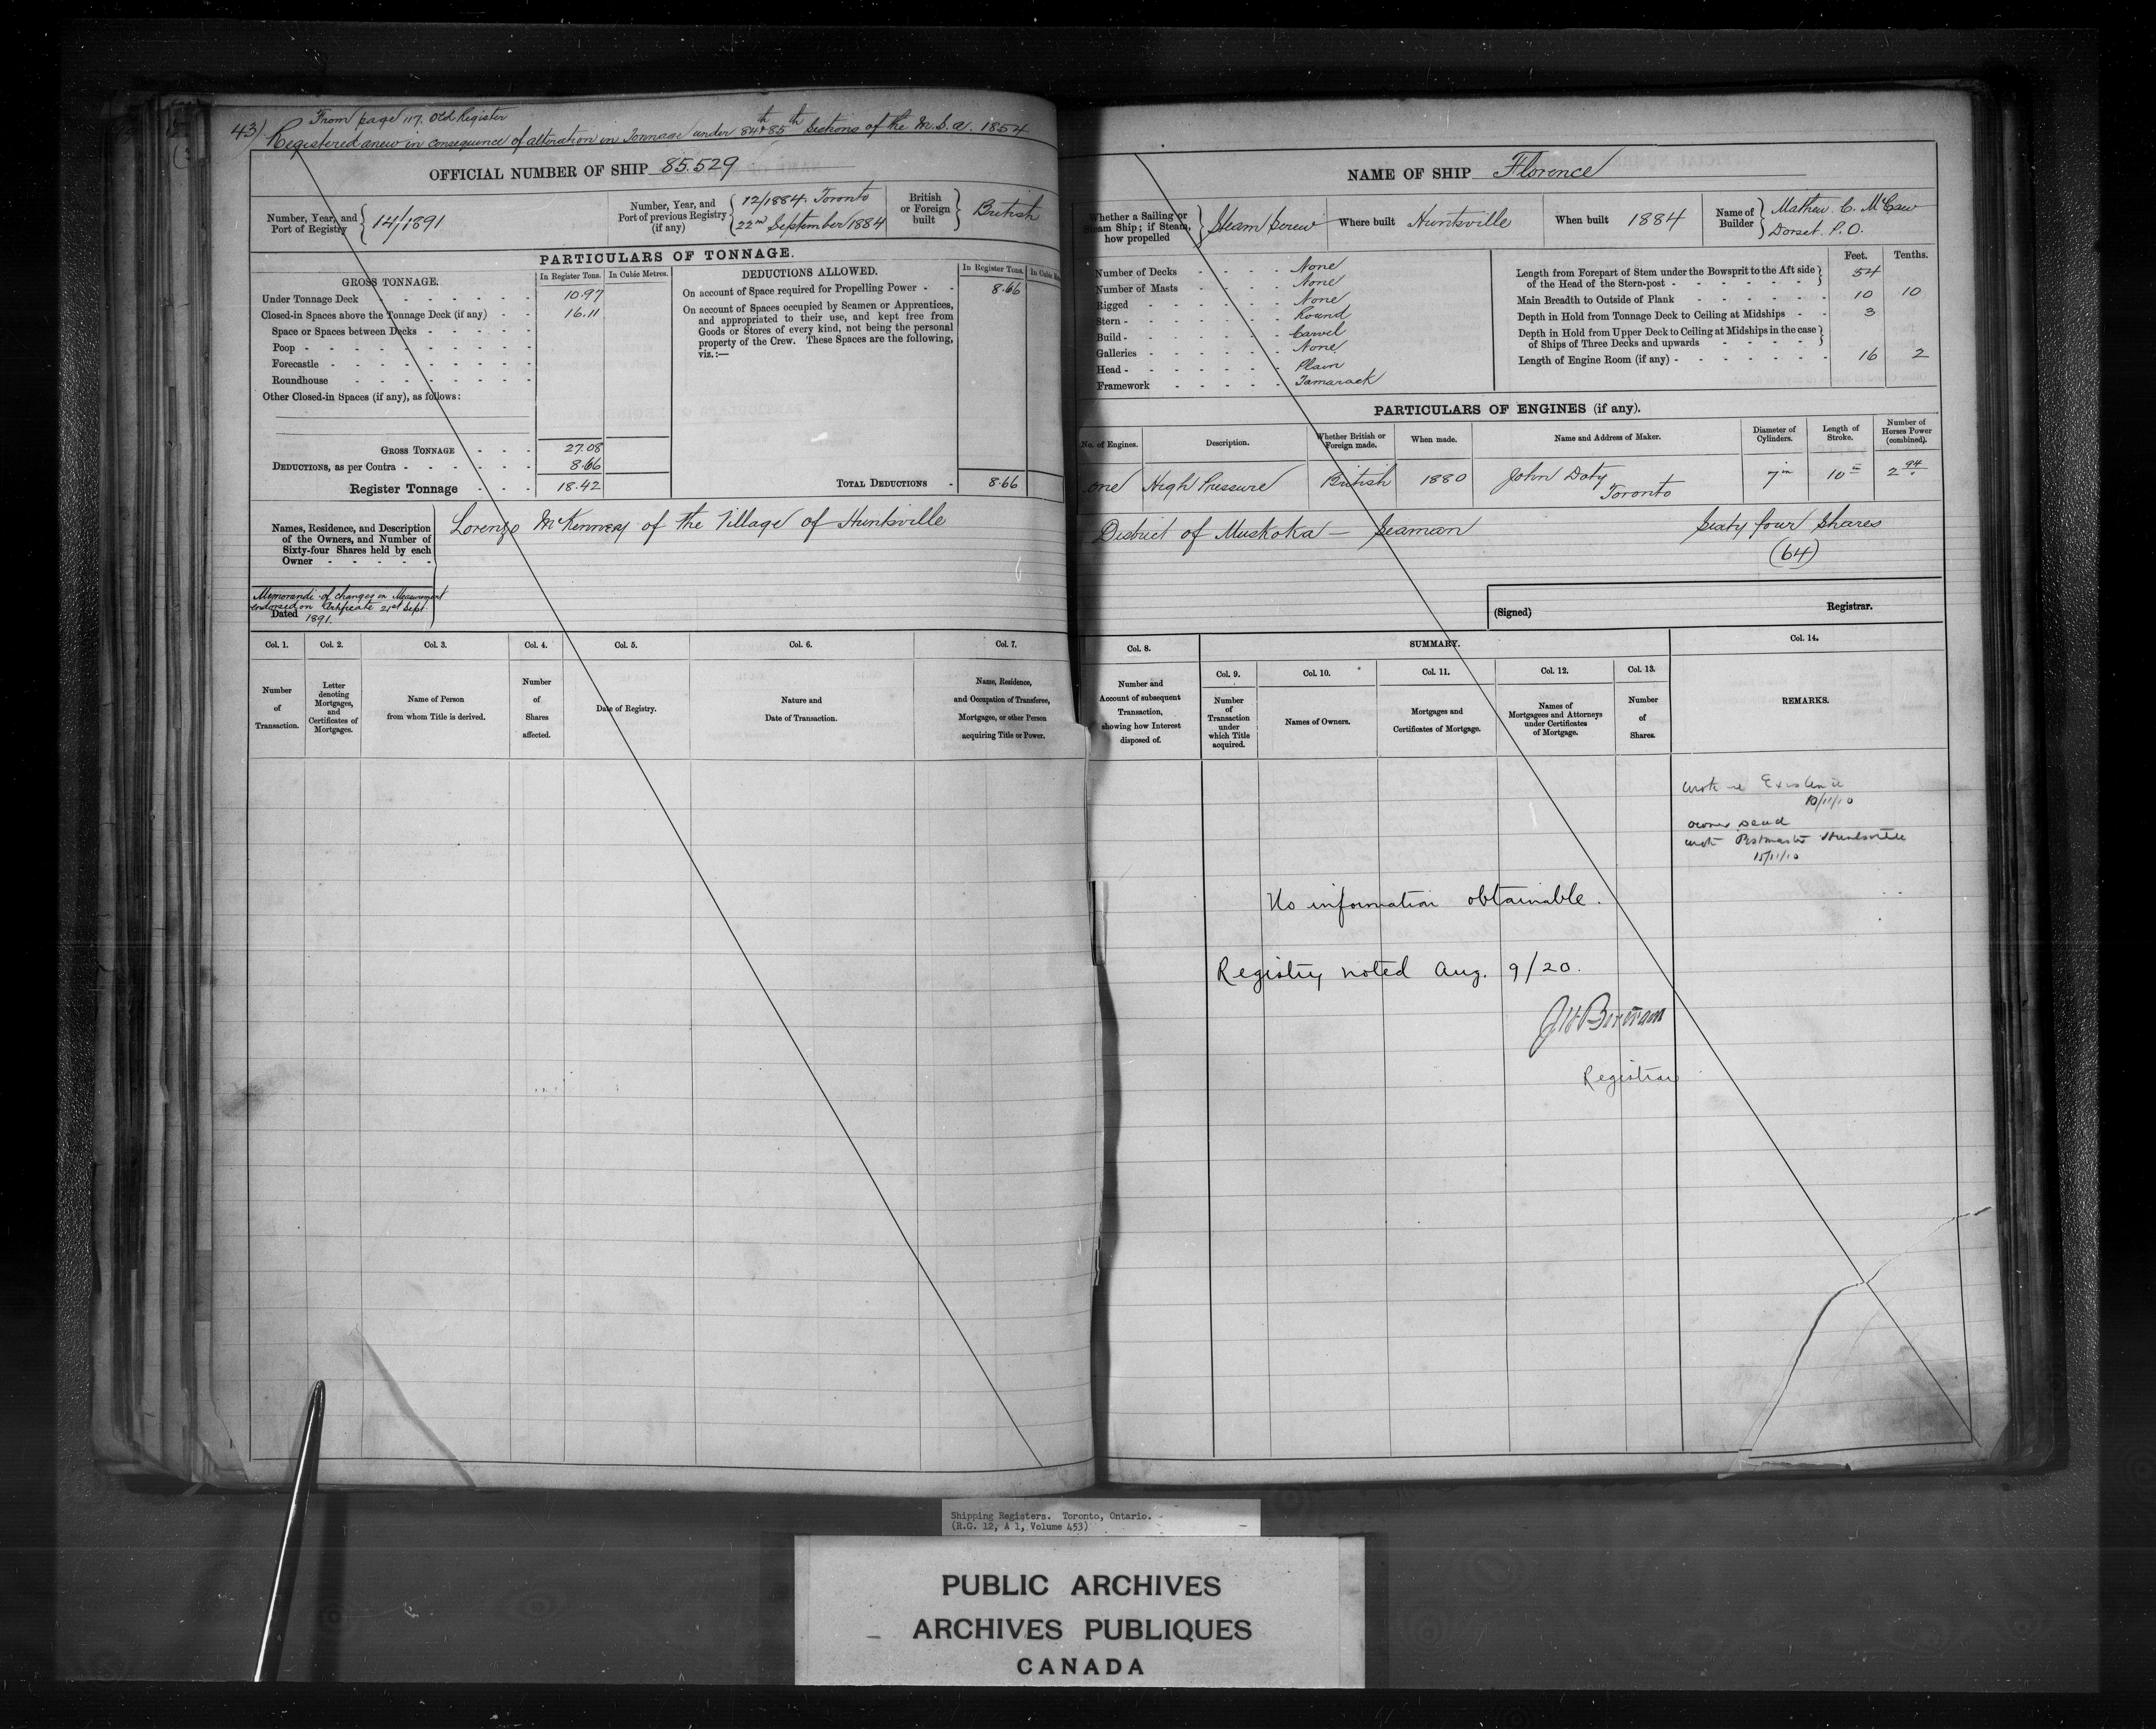 43)
From page 117. Old Register
Registered anew in consequence of alteration in Tonnage under 84th & 85th Sections of the M.S.A. 1854
OFFICIAL NUMBER OF SHIP 85.529
Number, Year, and Port of Registry { 14/1891
Number, Year, and Port of previous Registry (if any) { 12/1884. Toronto
22nd September 1884
British or Foreign built } British
PARTICULARS OF TONNAGE.
GROSS TONNAGE. In Register Tons. In Cubic Metres.
Under Tonnage Deck 10.97
Closed-in Spaces above the Tonnage Deck (if any) 16.11
Space or Spaces between Decks
Poop
Forecastle
Roundhouse
Other Closed-in Spaces (if any), as follows:
GROSS TONNAGE 27.08
DEDUCTIONS, as per Contra 8.66
Register Tonnage 18.42
DEDUCTIONS ALLOWED. In Register Tons. In Cubic
On account of Space required for Propelling Power 8.66
On account of Spaces occupied by Seamen or Apprentices,
and appropriated to their use, and kept free from
Goods or Stores of every kind, not being the personal
property of the Crew. These Spaces are the following,
viz.:—
TOTAL DEDUCTIONS 8.66
Names, Residence, and Description
of the Owners, and Number of
Sixty-four Shares held by each
Owner
Lorenzo McKenney of the Village of Huntsville
Memorandi of changes in Measurement
endorsed on Certificate 21st Sept.
Dated 1891.
Col. 1. Col. 2. Col. 3. Col. 4. Col. 5. Col. 6. Col. 7.
Number of Transaction.
Letter denoting Mortgages, and Certificates of Mortgages.
Name of Person from whom Title is derived.
Number of Shares affected.
Date of Registry.
Nature and Date of Transaction.
Name, Residence, and Occupation of Transferee, Mortgagee, or other Person acquiring Title or Power.
NAME OF SHIP Florence
Whether a Sailing or Steam Ship; if Steam, how propelled } Steam Screw
Where built Huntsville
When built 1884
Name of Builder } Mathew. C. McCaw
Dorset. P.O.
Number of Decks None
Number of Masts None
Rigged None
Stern Round
Build Carvel
Galleries None
Head Plain
Framework Tamarack
Feet. Tenths.
Length from Forepart of Stem under the Bowsprit to the Aft side
of the Head of the Stern-post 54
Main Breadth to Outside of Plank 10 10
Depth in Hold from Tonnage Deck to Ceiling at Midships 3
Depth in Hold from Upper Deck to Ceiling at Midships in the case
of Ships of Three Decks and upwards
Length of Engine Room (if any) 16 2
PARTICULARS OF ENGINES (if any).
No. of Engines. Description. Whether British or Foreign made. When made. Name and Address of Maker. Diameter of Cylinders. Length of Stroke. Number of Horses Power (combined).
one High Pressure British 1880 John Doty Toronto 7in 10in 2 94
District of Muskoka — Seaman Sixty four Shares
(64)
(Signed) Registrar.
Col. 8. SUMMARY. Col. 14.
Col. 9. Col. 10. Col. 11. Col. 12. Col. 13.
Number and Account of subsequent Transaction, showing how Interest disposed of.
Number of Transaction under which Title acquired.
Names of Owners.
Mortgages and Certificates of Mortgage.
Names of Mortgagees and Attorneys under Certificates of Mortgage.
Number of Shares.
REMARKS.
wrote re Existence
10/11/10
owner dead
wrote Postmaster Huntsville
15/11/10
No information obtainable.
Registry noted Aug. 9/20.
Registrar
Shipping Registers. Toronto, Ontario.
(R.G. 12, A 1, Volume 453)
PUBLIC ARCHIVES
ARCHIVES PUBLIQUES
CANADA